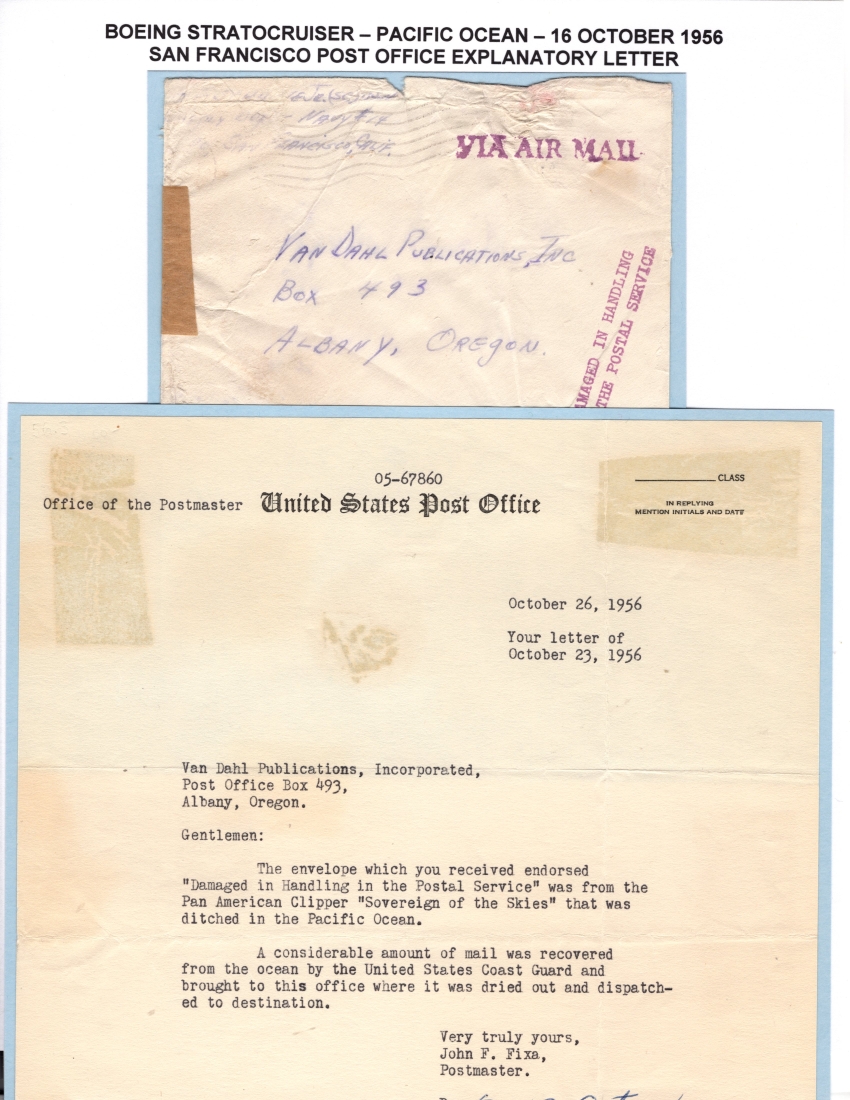 BOEING STRATOCRUISER – PACIFIC OCEAN – 16 OCTOBER 1956
SAN FRANCISCO POST OFFICE EXPLANATORY LETTER
NAVY
FRANCISCO, CALIF.
VIA AIR MAIL
VAN DAHL PUBLICATIONS, INC
BOX 493
ALBANY, OREGON.
AMAGED IN HANDLING
THE POSTAL SERVICE
05-67860
Office of the Postmaster United States Post Office
CLASS
IN REPLYING
MENTION INITIALS AND DATE
October 26, 1956
Your letter of
October 23, 1956
Van Dahl Publications, Incorporated,
Post Office Box 493,
Albany, Oregon.
Gentlemen:
The envelope which you received endorsed
"Damaged in Handling in the Postal Service" was from the
Pan American Clipper "Sovereign of the Skies" that was
ditched in the Pacific Ocean.
A considerable amount of mail was recovered
from the ocean by the United States Coast Guard and
brought to this office where it was dried out and dispatch-
ed to destination.
Very truly yours,
John F. Fixa,
Postmaster.